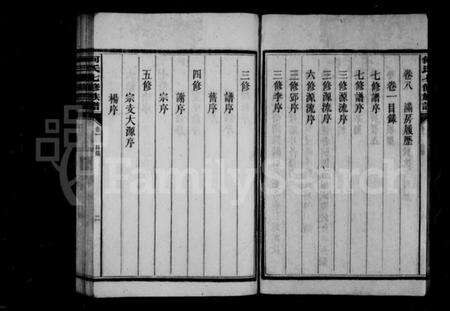 卷八 滿房履歷
卷一目錄
七修譜序
七修譜序
三修源流序
六修源流序
三修鄧序
三修李序
三修
譜序
舊序
四修
謝序
宗序
五修
宗支大源序
楊序
FamilySearch